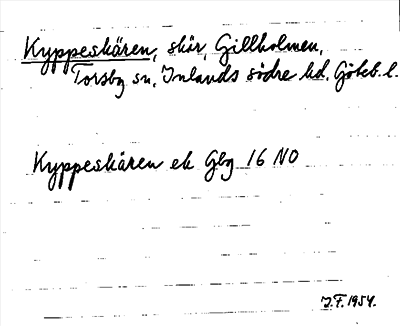 Kyppeskären, skär, Gillholmen,
Torsby sn, Inlands södre hd. Göteb. l.
Kyppeskären ek Gbg 16 NO
J.F. 1954.